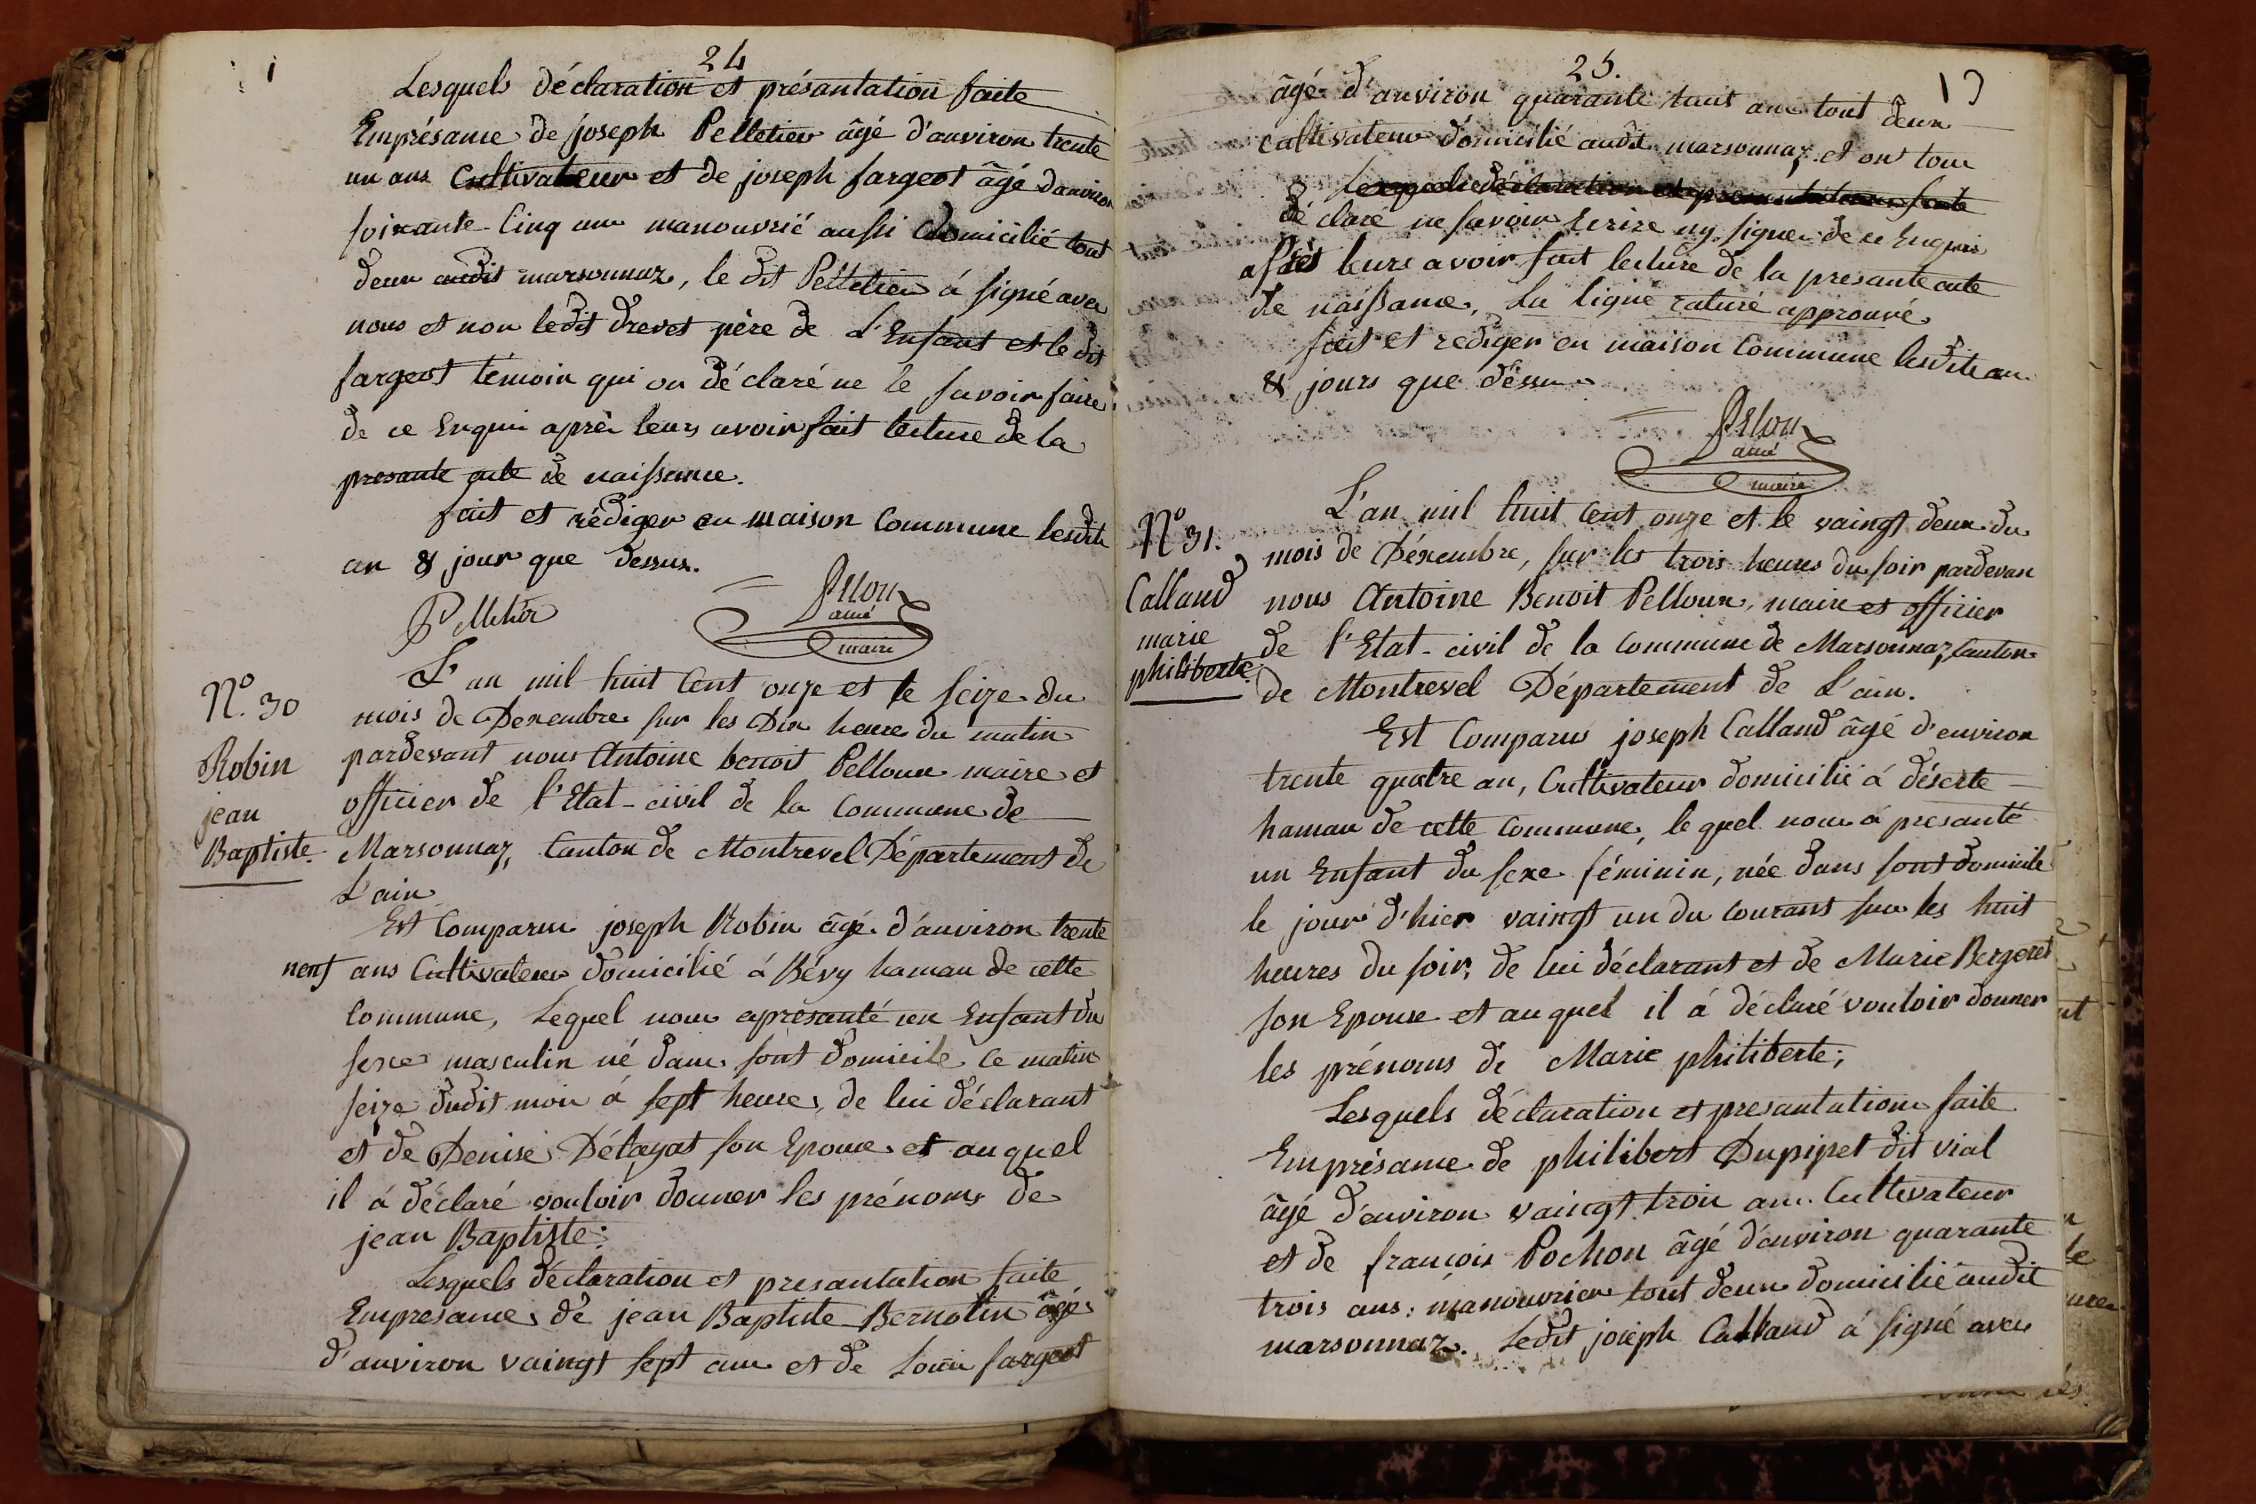 24
Lesquels déclaration et présantation faite
Emprésance de joseph Pelletier âgé d'anviron trente
un ans Cultivateur et de joseph fargeot âgé d'anviron
soixante Cinq ans manouvrié aussi domicilié tout
deux audit marsonnaz, le dit Pelletier á signé avec
nous et non ledit drevet père de L'Enfant et le dit
fargeot témoin qui on déclaré ne le savoir faire
de ce Enquis après leurs avoir fait lecture de la
presante acte de naissance.
fait et rédiger en maison Commune lesdits
an & jour que dessus.
Pelletier
Pelloux
ainé
maire
N° 30
Robin
jean
Baptiste
L'an mil huit Cent onze et le seize du
mois de Dexembre sur les Dix heure du matin
pardevant nous Antoine benoit Pelloux maire et
officier de l'Etat-civil de la Commune de
Marsonnaz, Canton de Montrevel Département de
L'ain
Est Comparus joseph Robin âgé d'anviron trente
neuf ans Cultivateur domicilié á Bévy hamau de cette
Commune, Lequel nous apresanté un Enfant du
sexe masculin né dans sont domicile ce matin
seize dudit mois á sept heures, de lui déclarant
et de Denise Délayat son Epouse et auquel
il á déclaré vouloir donner les prénoms de
jean Baptiste.
Lesquels déclaration et presantation faite
Empresance de jean Baptiste Bernotin âgé
d'anviron vaingt sept ans et de Louis fargeot
25.
13
âgé d'anviron quarante huit ans tout deux
cultivateur domicilié audit marsonnaz et on tous
Lesquels déclaration et presantation faite
déclaré ne savoir Ecrire ny signer de ce Enquis
après leurs avoir fait lecture de la presante acte
de naissance, La ligne raturé approuvé
fait et rediger en maison Commune lesdits an
& jours que dessus
Pelloux
ainé
maire
N° 31.
Calland
marie
philiberte
L'an mil huit Cent onze et le vaingt deux du
mois de Déxembre, sur les trois heures du soir pardevan
nous Antoine Benoit Pelloux, maire et officier
de l'Etat-civil de la Commune de Marsonnaz, Canton
de Montrevel Département de L'ain.
Est Comparus joseph Calland âgé d'environ
trente quatre an, Cultivateur domicilié á déserte
hamau de cette Commune, le quel nous á presanté
un Enfant du sexe féminin, née dans sont domicile
le jour d'hier vaingt un du Courant sur les huit
heures du soir, de lui déclarant et de Marie Bergeret
son Epouse et auquel il á déclaré vouloir donner
les prénoms de Marie philiberte;
Lesquels déclaration et presantation faite
Emprésance de philibert Dupipet dit vial
âgé d'environ vaingt trois ans Cultivateur
et de françois Pochon âgé d'environ quarante
trois ans, manouvrier tout deux domicilié audit
marsonnaz. Ledit joseph Calland á signé avec